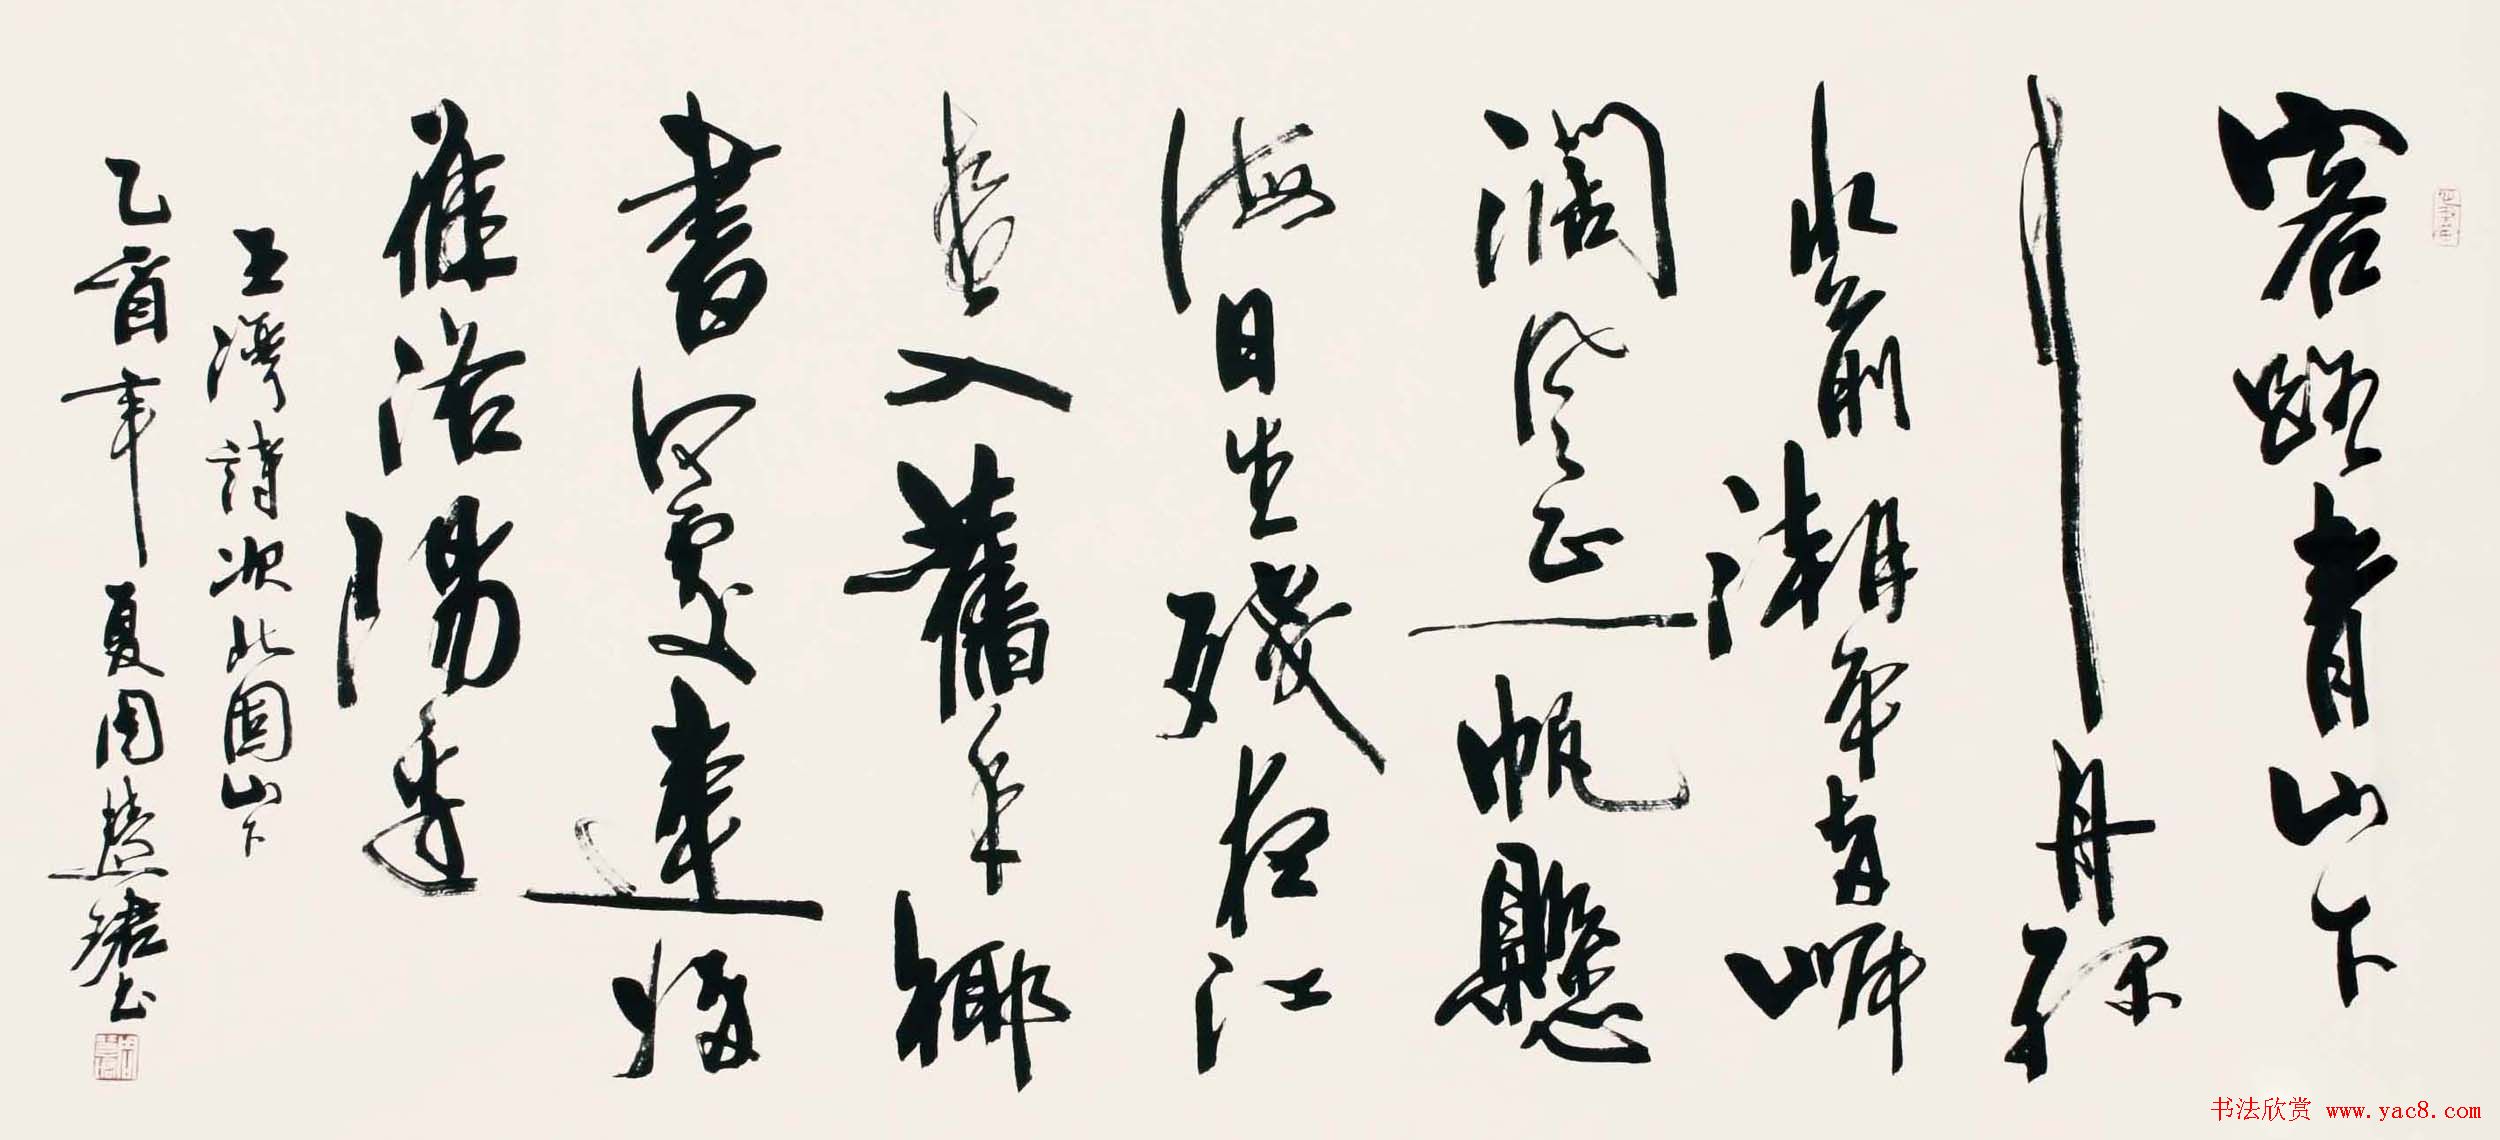 客路青山下
行舟綠
水前潮平兩岸
闊風正一帆懸
海日生殘夜江
春入舊年鄉
書何處達歸
雁洛陽邊
王灣詩次北固山下
乙酉年夏周慧珺书
书法欣赏 www.yac8.com